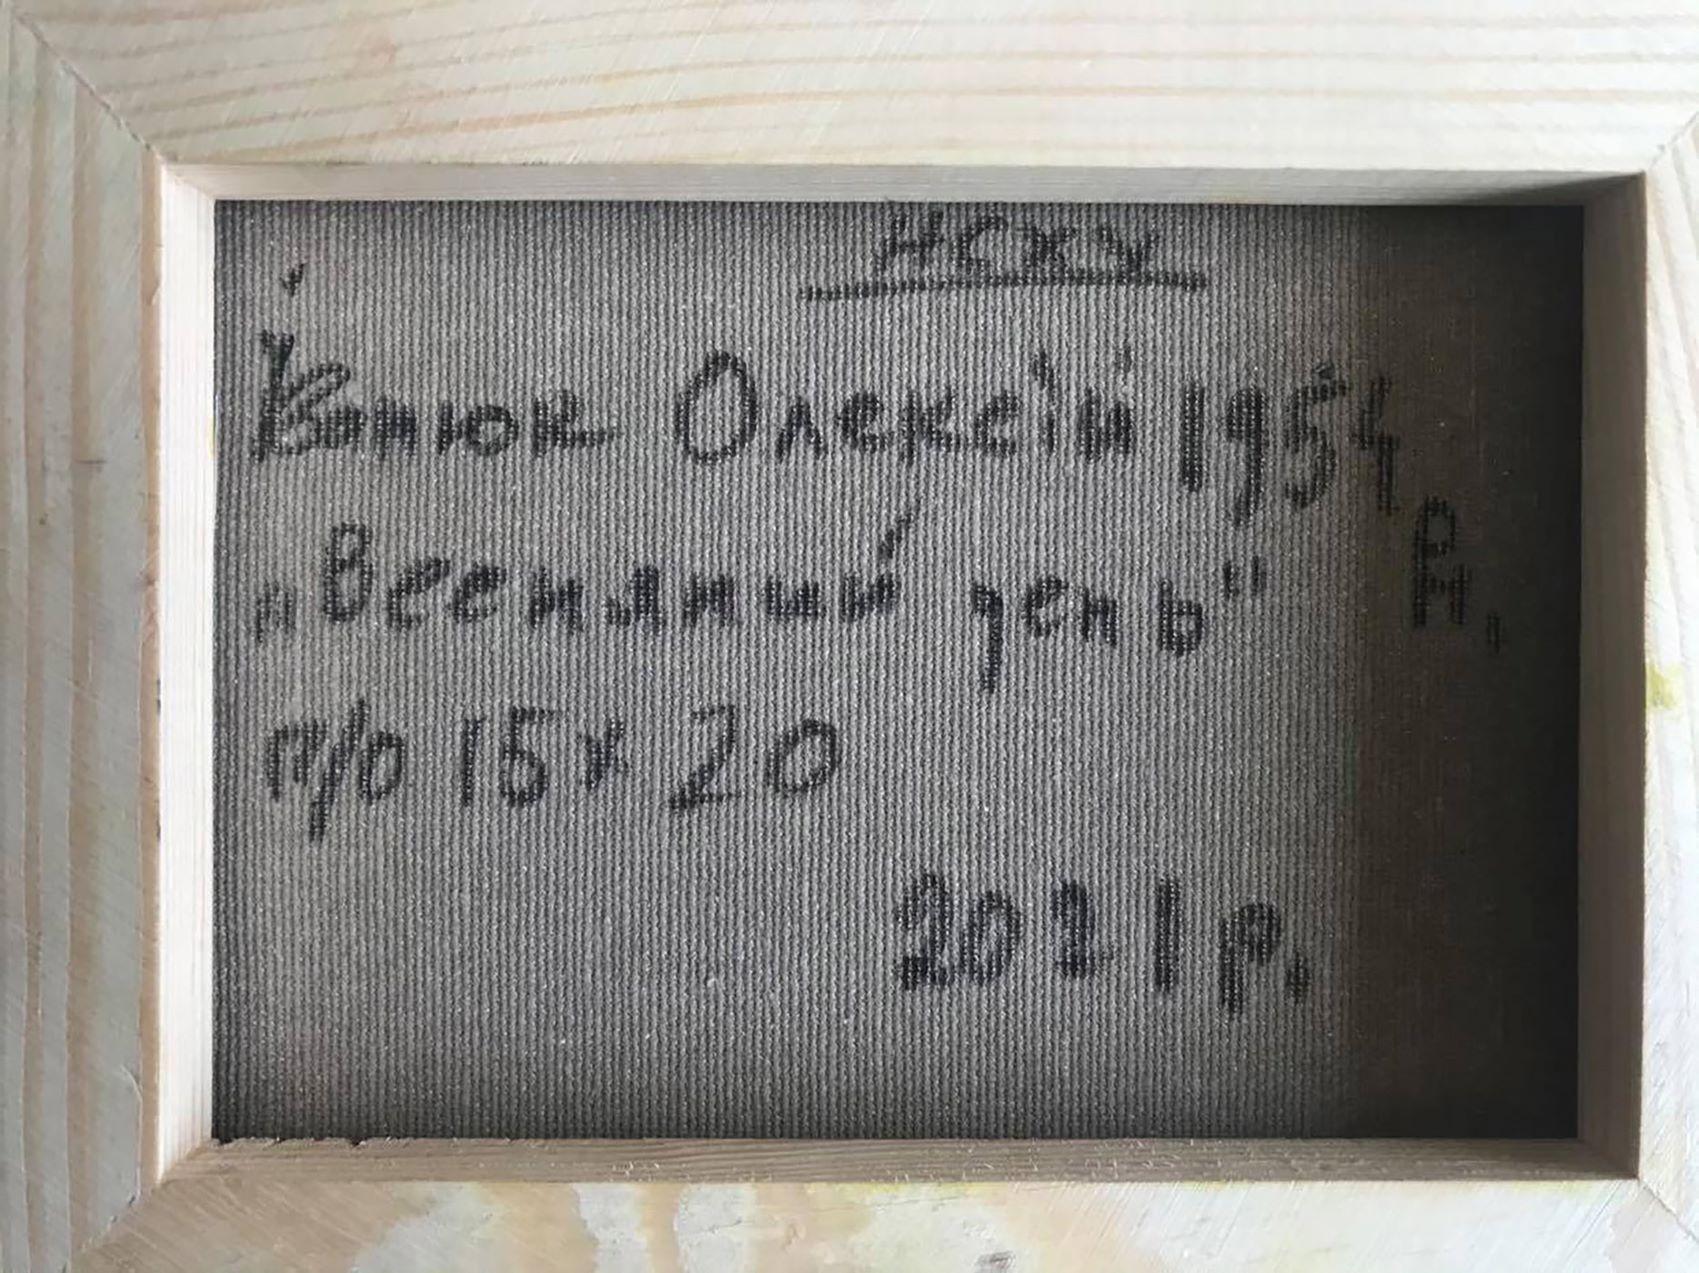 НСХУ
Іванюк Олексій 1954
р.н.
„Весняний день"
п/о 15х20
2021 р.